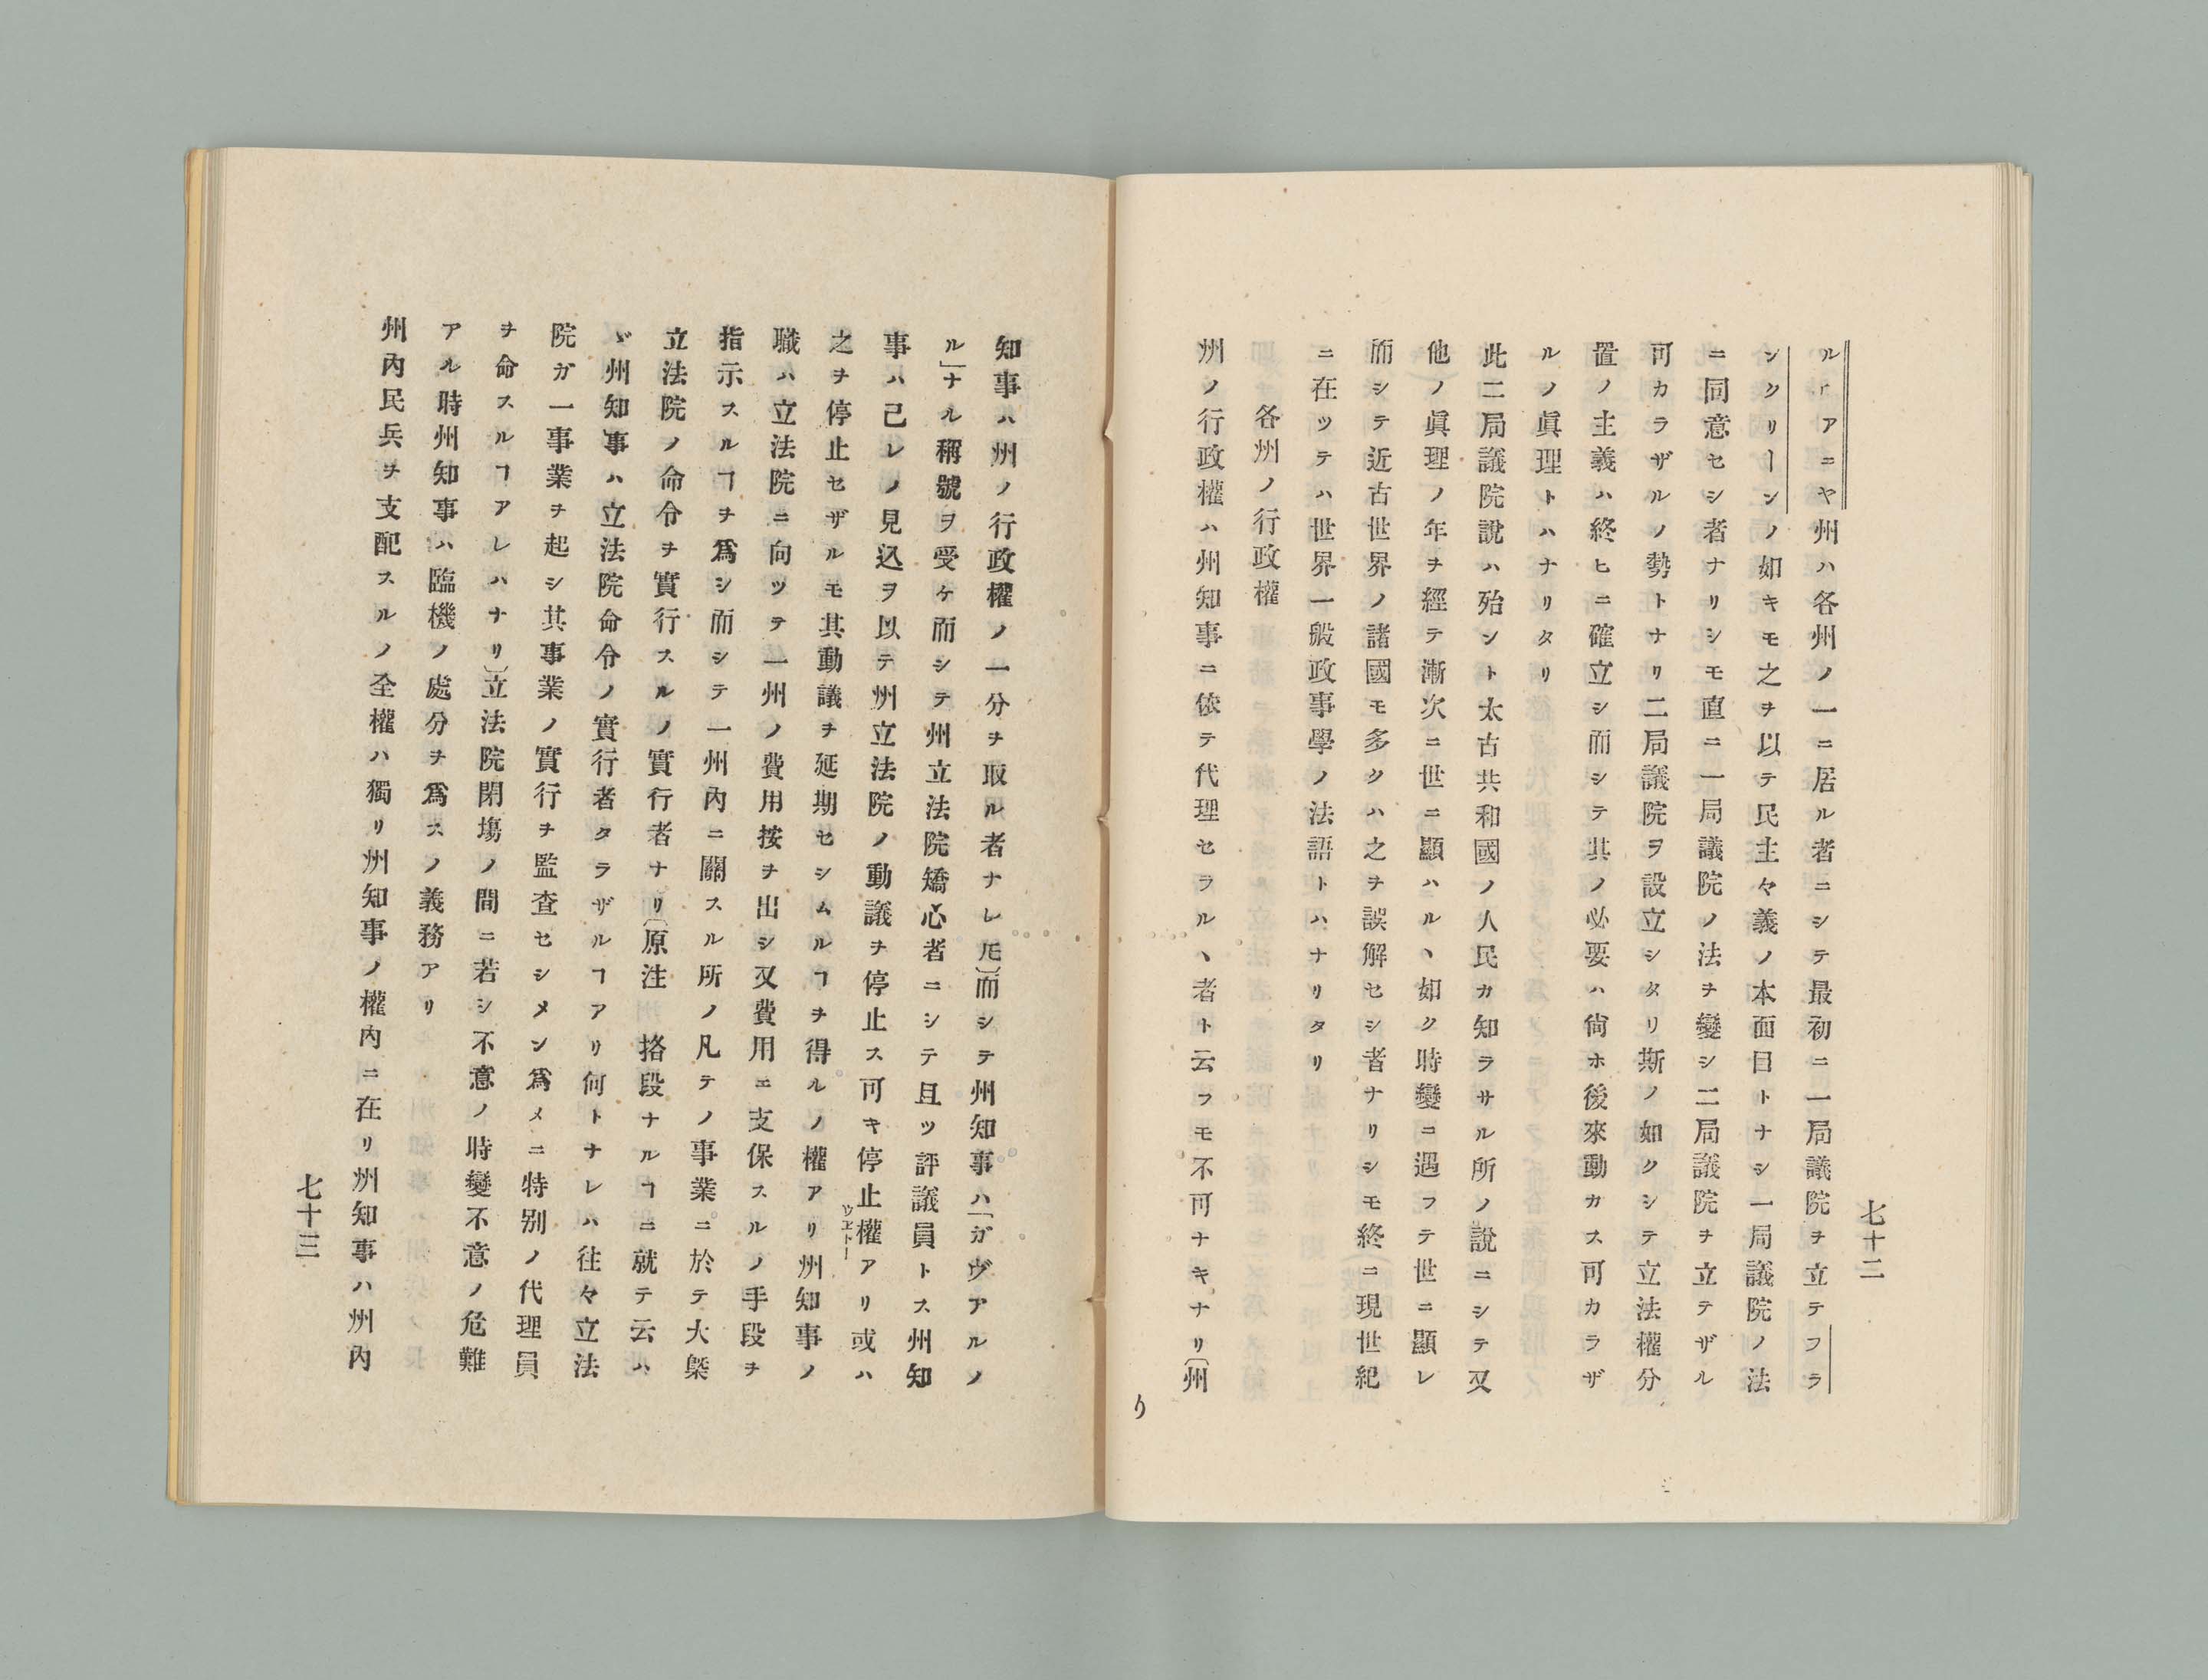 七十二
ルァアニヤ州ハ各州ノ一ニ居ル者ニシテ最初ニ一局議院ヲ立テフラ
ンクリーンノ如キモ之ヲ以テ民主々義ノ本面目トナシ一局議院ノ法
ニ同意セシ者ナリシモ直ニ一局議院ノ法ヲ變シ二局議院ヲ立テザル
可カラザルノ勢トナリ二局議院ヲ設立シタリ斯ノ如クシテ立法權分
置ノ主義ハ終ヒニ確立シ而シテ其ノ必要ハ尙ホ後來動カス可カラザ
ルノ眞理トハナリタリ
此二局議院說ハ殆ント太古共和國ノ人民カ知ラサル所ノ說ニシテ又
他ノ眞理ノ年ヲ經テ漸次ニ世ニ顯ハルヽ如ク時變ニ遇フテ世ニ顯レ
而シテ近古世界ノ諸國モ多クハ之ヲ誤解セシ者ナリシモ終ニ現世紀
ニ在ツテハ世界一般政事學ノ法語トハナリタリ
各州ノ行政權
州ノ行政權ハ州知事ニ依テ代理セラルヽ者ト云フモ不可ナキナリ〔州
り
知事ハ州ノ行政權ノ一分ヲ取ル者ナレ𪜈〕而シテ州知事ハ「ガヴアルノ
ル」ナル稱號ヲ受ケ而シテ州立法院矯心者ニシテ且ツ評議員トス州知
事ハ己レノ見込ヲ以テ州立法院ノ動議ヲ停止ス可キ停止權アリ或ハ
ウエトー
之ヲ停止セザルモ其動議ヲ延期セシムルヿヲ得ルノ權アリ州知事ノ
職ハ立法院ニ向ツテ一州ノ費用按ヲ出シ又費用ニ支保スルノ手段ヲ
指示スルヿヲ爲シ而シテ一州內ニ關スル所ノ凡テノ事業ニ於テ大槩
立法院ノ命令ヲ實行スルノ實行者ナリ〔原注 挌段ナルヿニ就テ云ハ
ヾ州知事ハ立法院命令ノ實行者タラザルヿアリ何トナレハ往々立法
院ガ一事業ヲ起シ其事業ノ實行ヲ監査セシメン爲メニ特別ノ代理員
ヲ命スルヿアレハナリ〕立法院閉塲ノ間ニ若シ不意ノ時變不意ノ危難
アル時州知事ハ臨機ノ處分ヲ爲スノ義務アリ
州內民兵ヲ支配スルノ全權ハ獨リ州知事ノ權內ニ在リ州知事ハ州內
七十三